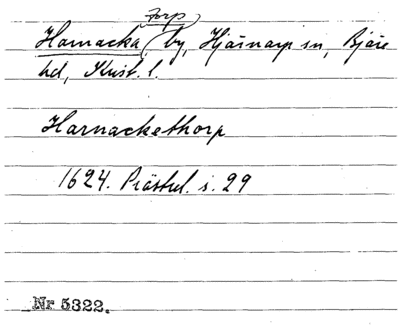 torp
Harnacka by, Hjärnarp sn, Bjäre
hd, Krist. l.
Harnackethorp
1624. Prästrel. s. 29
Nr 5322.